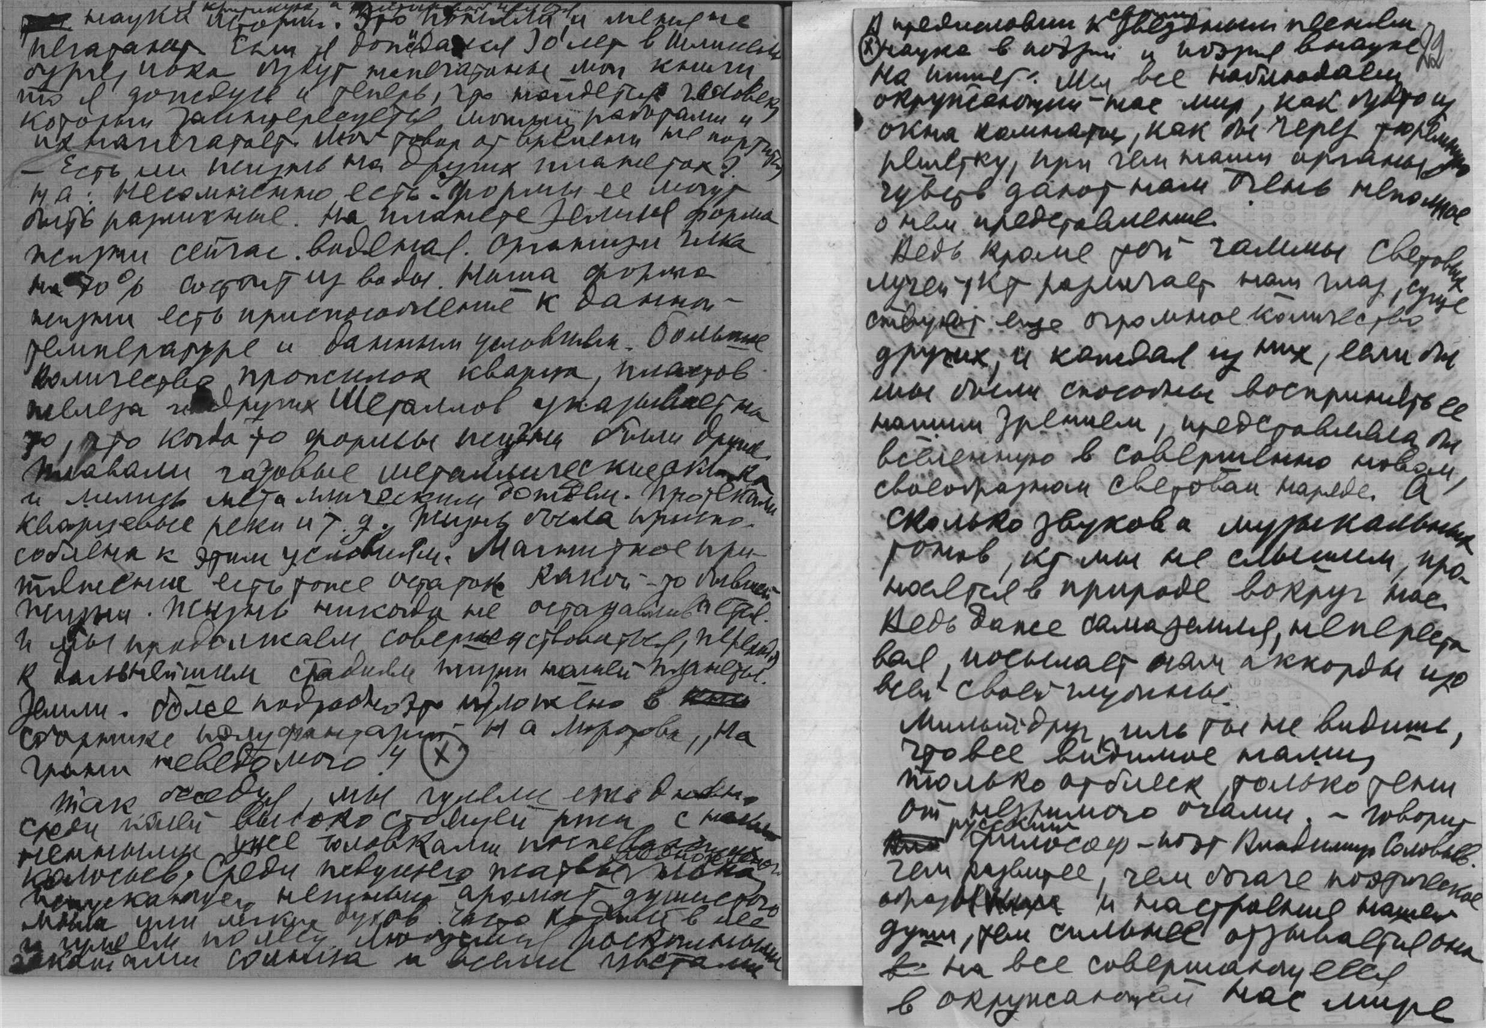 науки истории. Это поняли и меня не
печатают. Если я дожидался 30 лет в Шлиссель
бурге, пока будут напечатаны мои книги
то я дождусь и теперь, что найдется человек,
который заинтересуется моими работами и
их напечатает. Мой товар от времени не портится
– Есть ли жизнь на других планетах?
на: Несомненно есть. Формы ее могут
быть различные. На планете Земля форма
жизни сейчас водяная. Организм ч-ка
на 70% состоит из воды. Наша форма
жизни есть приспособление к данной
температуре и данным условиям. Большие
количества прожилок кварца, пластов
железа и других металлов указывает на
то, что когда то формы жизни были другие.
Плавали газовые металлические облака
и лились металлическим дождем. Протекали
кварцевые реки и т.д. Жизнь была приспо-
соблена к этим условиям. Магнитное при-
тяжение есть тоже остаток какой-то бывшей
жизни. Жизнь никогда не останавливается.
И мы продолжаем совершенствоваться, переходя
к дальнейшим стадиям жизни нашей планеты.
Земли. Более подробно это изложено в
сборнике полуфантазий Н А Морозова, „На
грани неведомого“. (X)
Так беседуя, мы гуляли ежедневно
среди высоко стоящей ржи, с
уже головками поспевающих
колосьев. Среди
испускающего нежный аромат душистого
мыла или легких духов. Часто ходили в лес
и гуляем по лесу любуемся роскошными
закатами солнца и всеми цветами
В предисловии к своим Звездным песням
(X) наука в поэзии и поэзия в науке 29
На пишет: Мы все наблюдаем
окружающий нас мир, как будто из
окна комнаты, как бы через тюремную
решетку, при чем наши органы
чувств дают нам очень неполное
о нем представление.
Ведь кроме той гаммы световых
лучей, кт различает наш глаз, суще
ствует еще огромное количество
других, и каждая из них, если бы
мы были способны воспринять ее
нашим зрением, представляла бы
вселенную в совершенно новом,
своеобразном световом наряде. А
сколько звуков и музыкальных
тонов, кт мы не слышим, про-
носятся в природе вокруг нас
Ведь даже сама земля, не переста
вая, посылает нам аккорды изо
всей своей глубины.
Милый друг, иль ты не видишь,
что все видимое нами,
только отблеск, только тени
от незримого очами. – говорит
русский философ-поэт Владимир Соловьев.
Чем развитее, чем богаче поэтические
образы и настроения нашей
души, тем сильнее отзывается она
на все совершающееся
в окружающем нас мире